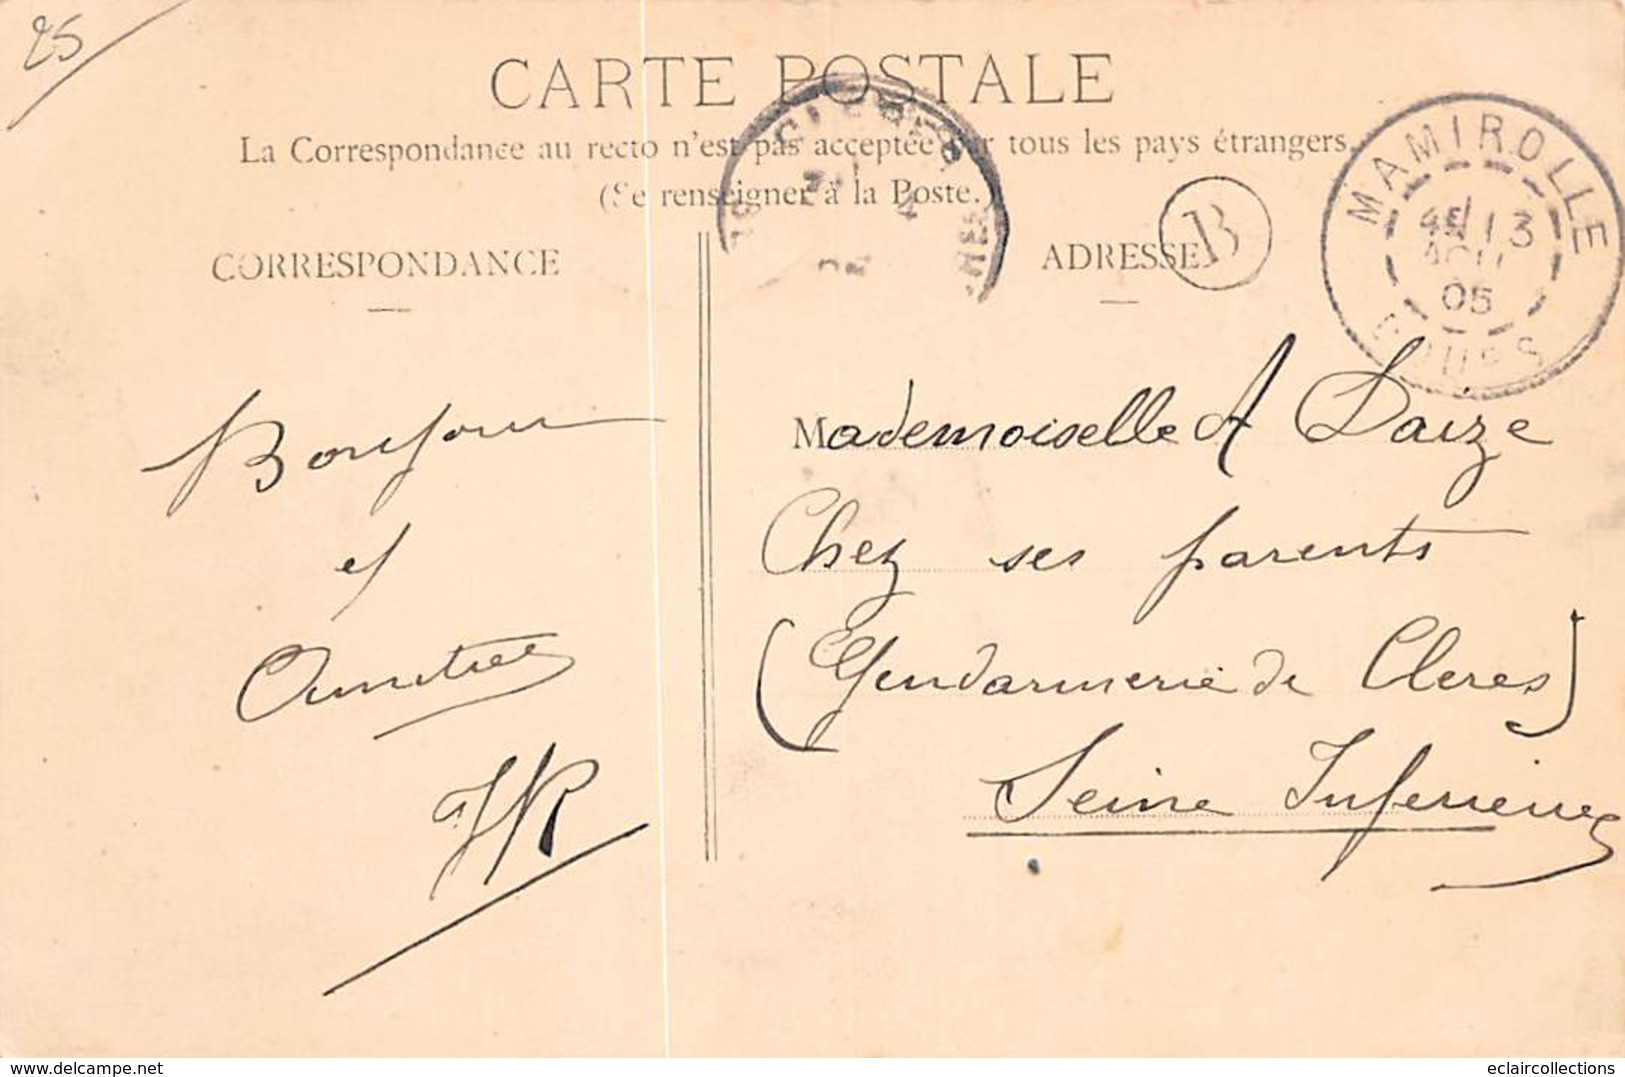 25
CARTE POSTALE
La Correspondance au recto n'est pas acceptée par tous les pays étrangers.
(Se renseigner à la Poste.)
CORRESPONDANCE
ADRESSE
B
MAMIROLLE
13
AOU
05
DOUBS
Bonjour
et
Amitiés
JR
Mademoiselle A Daize
Chez ses parents
(Gendarmerie de Cleres)
Seine Inferieure
www.delcampe.net
eclaircollections